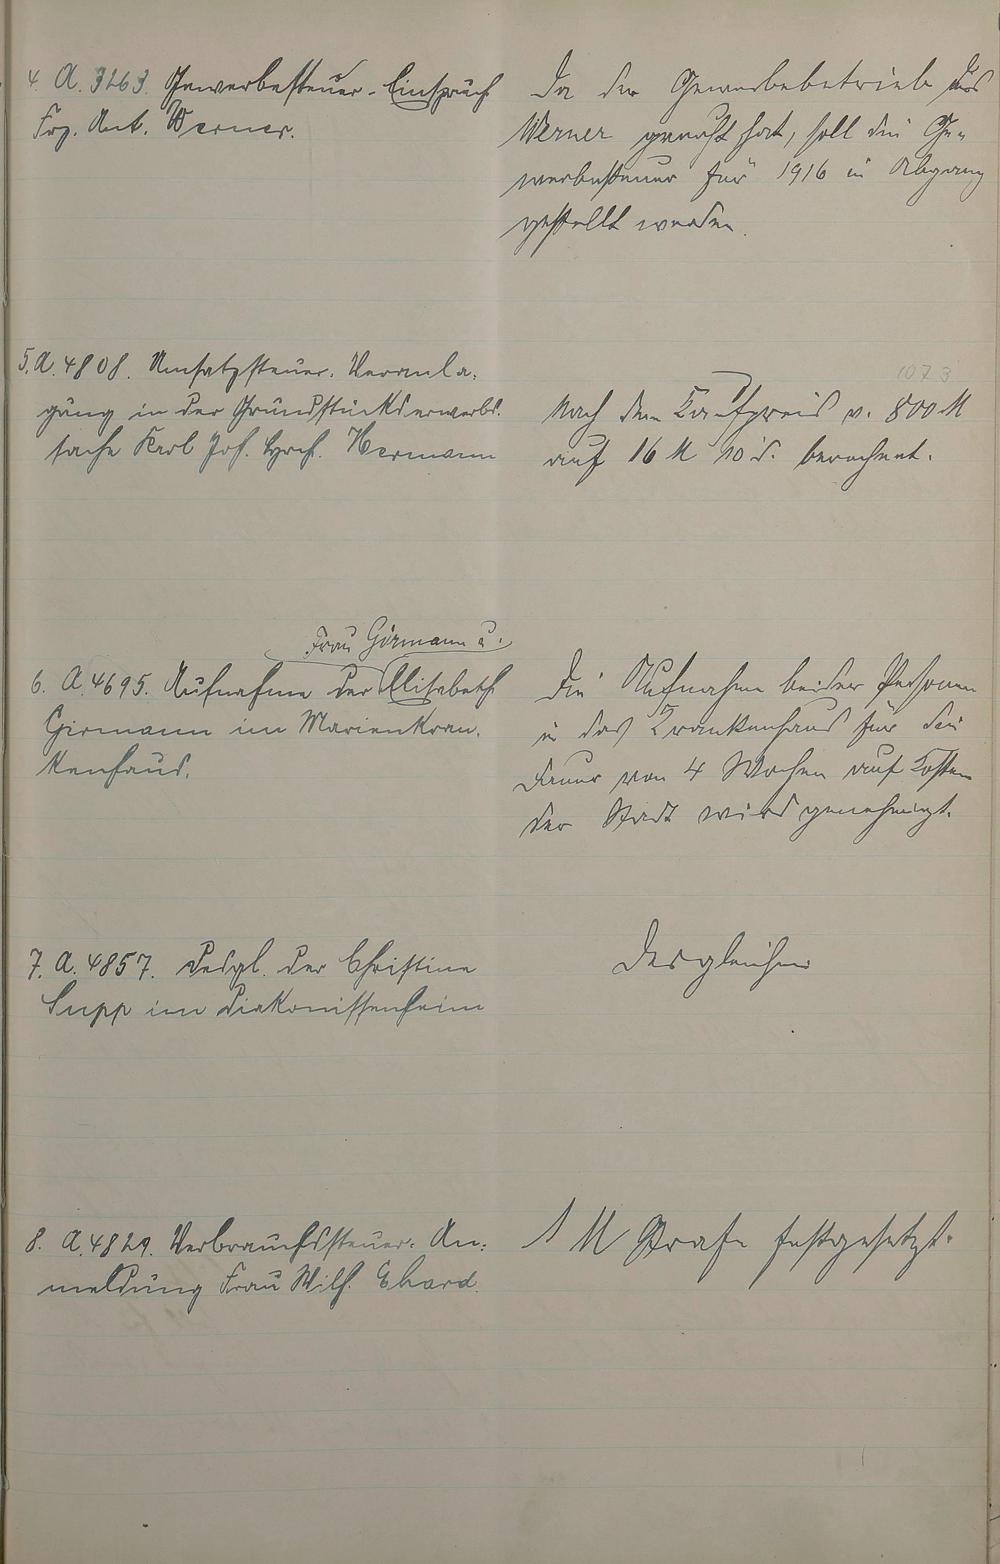 4. A. 3263. Gewerbesteuer-Einspruch
Frz. Ant. Werner.
Da der Gewerbebetrieb des
Werner geruht hat, soll die Ge-
werbesteuer für 1916 in Abgang
gestellt werden.
5. A. 4808. Umsatzsteuer-Veranla-
gung in der Grundstückserwerbs-
sache Karl Jos. Hrch. Hermann
1073
Nach dem Kaufpreis v. 800 M
auf 16 M 10 d. berechnet.
Frau Girmann u.
6. A. 4695. Aufnahme der Elisabeth
Girmann im Marienkran-
kenhaus.
Die Aufnahme beider Personen
in das Krankenhaus für die
Dauer von 4 Wochen auf Kosten
der Stadt wird genehmigt.
7. A. 4857. Desgl. der Christine
Supp im Diakonissenheim
Desgleichen
8. A. 4829. Verbrauchssteuer-An-
meldung Frau Wilh. Ehard.
1 M Strafe festgesetzt.